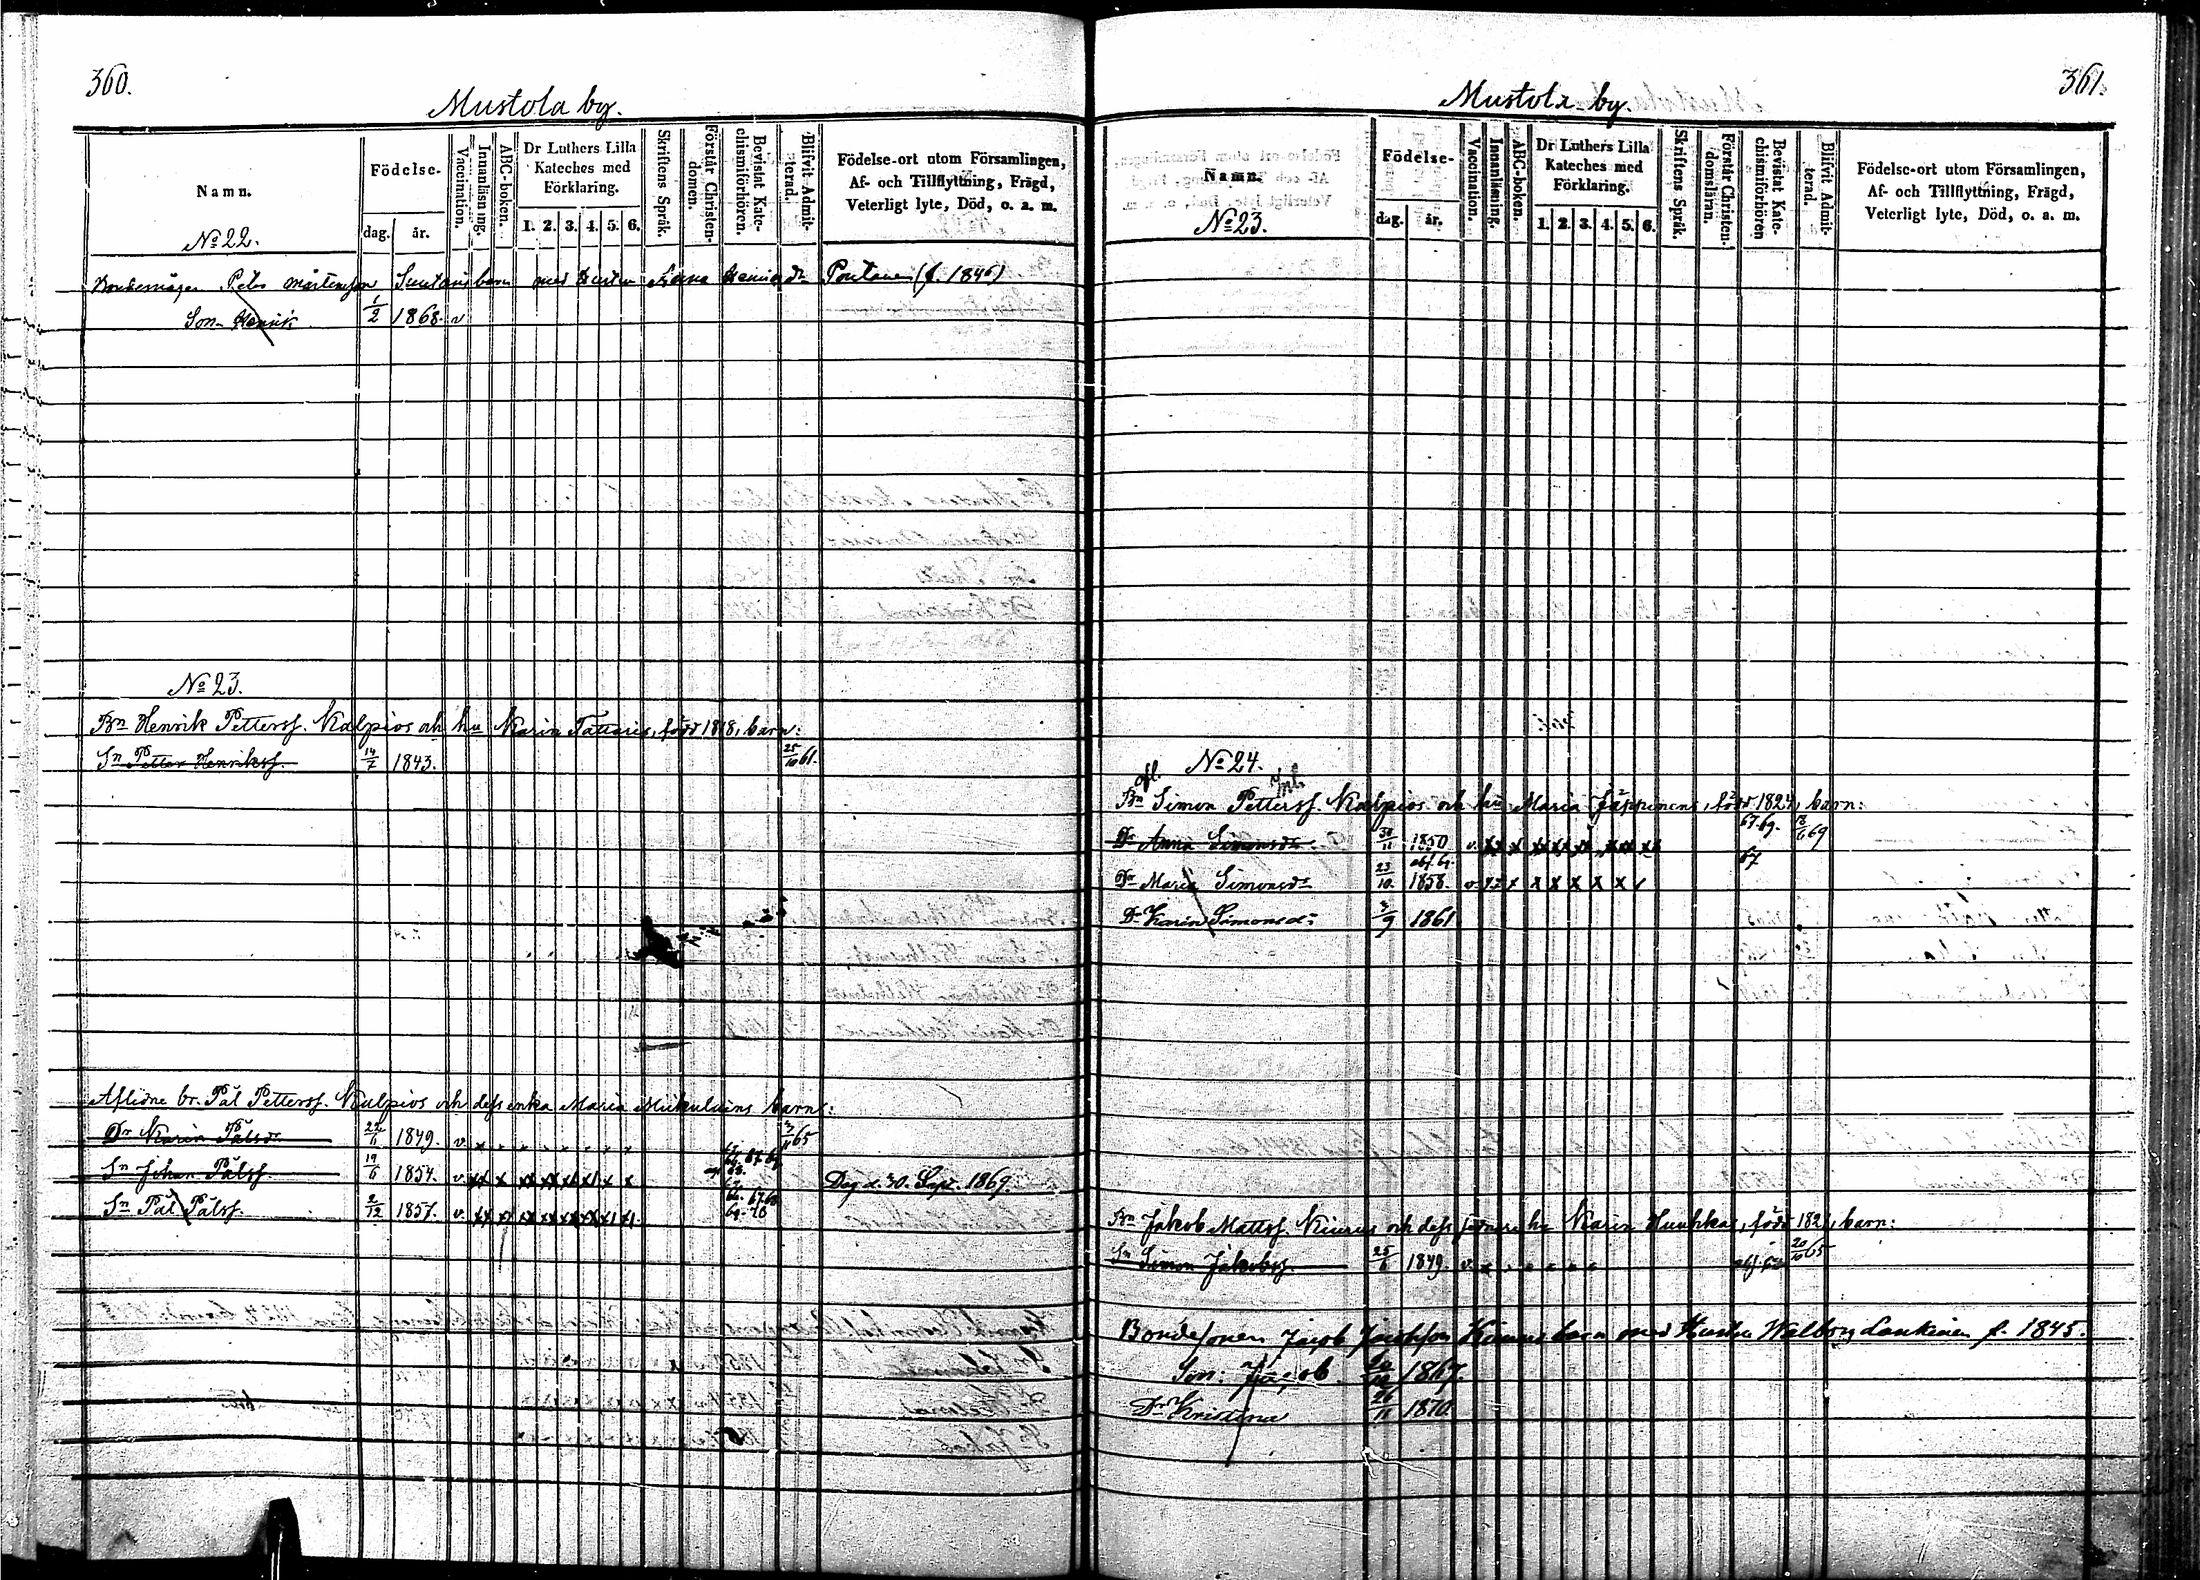 360.
Mustola by.
Namn.
Födelse-
dag.
år.
Vaccination.
Innanläsning.
ABC-boken.
Dr Luthers Lilla
Kateches med
Förklaring.
1. 2. 3. 4. 5. 6.
Skriftens Språk.
Förstår Christen-
domen.
Bevistat Kate-
chismiförhören.
Blifvit Admit-
terad.
Födelse-ort utom Församlingen,
Af- och Tillflyttning, Frägd,
Veterligt lyte, Död, o. a. m.
No 22.
Petter Mårtensson barn med Hustru Anna Pontanen (f. 1846)
Son Henrik 1/2 1868. v
No 23.
Bn Henrik Petterss. Kalpios och hu Karin Tattaris, född 1818, barn:
Sn Petter Henrikss. 14/7 1843. 25/10 61.
Aflidne br. Pål Petterss. Kalpios och dess enka Maria Mikulains barn:
Dr Karin Pålsdr 22/11 1849. v. x 65
Sn Johan Pålss. 19/6 1854. v. xx x xx xx x x 67 69
Dog d. 30. Sept. 1869.
Sn Pål Pålss. 2/12 1857. v. xx
361.
Mustola by.
Namn.
Födelse-
dag.
år.
Vaccination.
Innanläsning.
ABC-boken.
Dr Luthers Lilla
Kateches med
Förklaring.
1. 2. 3. 4. 5. 6.
Skriftens Språk.
Förstår Christen-
domsläran.
Bevistat Kate-
chismiförhören
Blifvit Admit-
terad.
Födelse-ort utom Församlingen,
Af- och Tillflyttning, Frägd,
Veterligt lyte, Död, o. a. m.
No 23.
No 24.
afl.
Bn Simon Petterss. Kalpios och hu Maria Jäppinens, född 1827, barn:
Dr Anna Simonsdr 30/11 1850 v. xx x 67. 69. 69
Dr Maria Simonsdr 23/10. 1858. v. x x x x x x 67
Dr Karin Simonsdr 3/9 1861.
Bn Jakob Matts. Kiurus och dess hu Karin Huuhkas, född 1821, barn:
Sn Simon Jakobss. 25/6 1849. v. x 20/10 65
Bondesonen Jacob Jacobsson Kiurus barn med Hustru Walborg Laukinen f. 1845.
Son: Jacob 1867.
Dr Kristina 1870